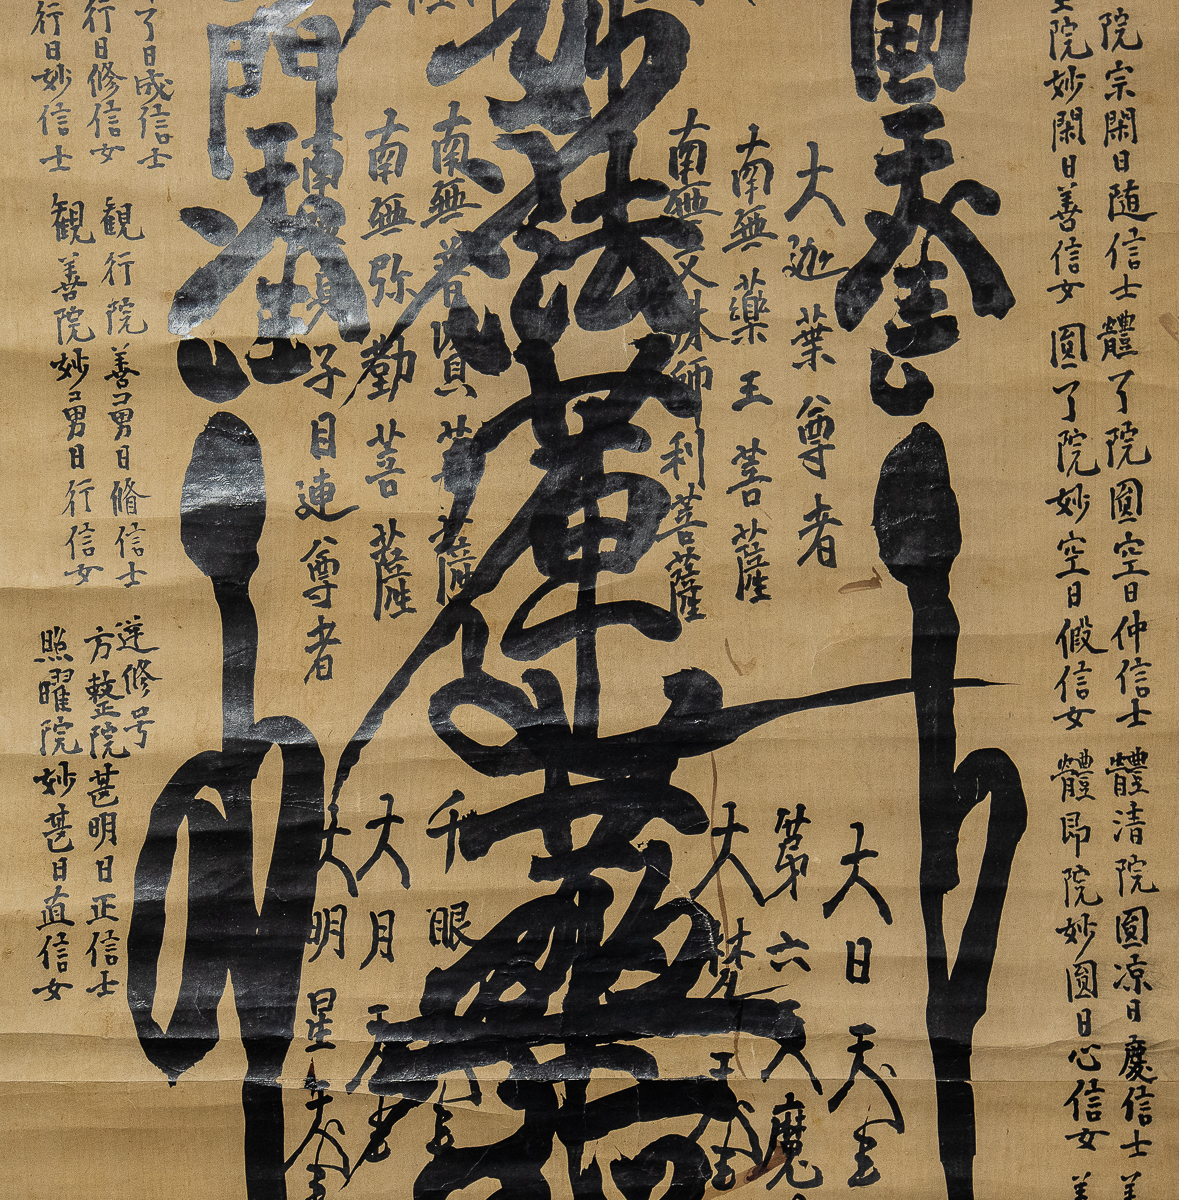 院宗閑日随信士 體了院圓空日仲信士 體清院圓凉日慶信士
院妙閑日善信女 圓了院妙空日假信女 體即院妙圓日心信女
國天王
大迦葉尊者
南無藥王菩薩
南無文殊師利菩薩
大日天王
第六天魔
大梵天王
妙法蓮華
南無普賢菩薩
南無弥勒菩薩
目連尊者
千眼天
大月天王
大明星天
門天王
了日成信士
行日修信女
行日妙信士
観行院善 男日脩信士
観善院妙 男日行信女
逆修号
方整院甚明日正信士
照曜院妙甚日直信女